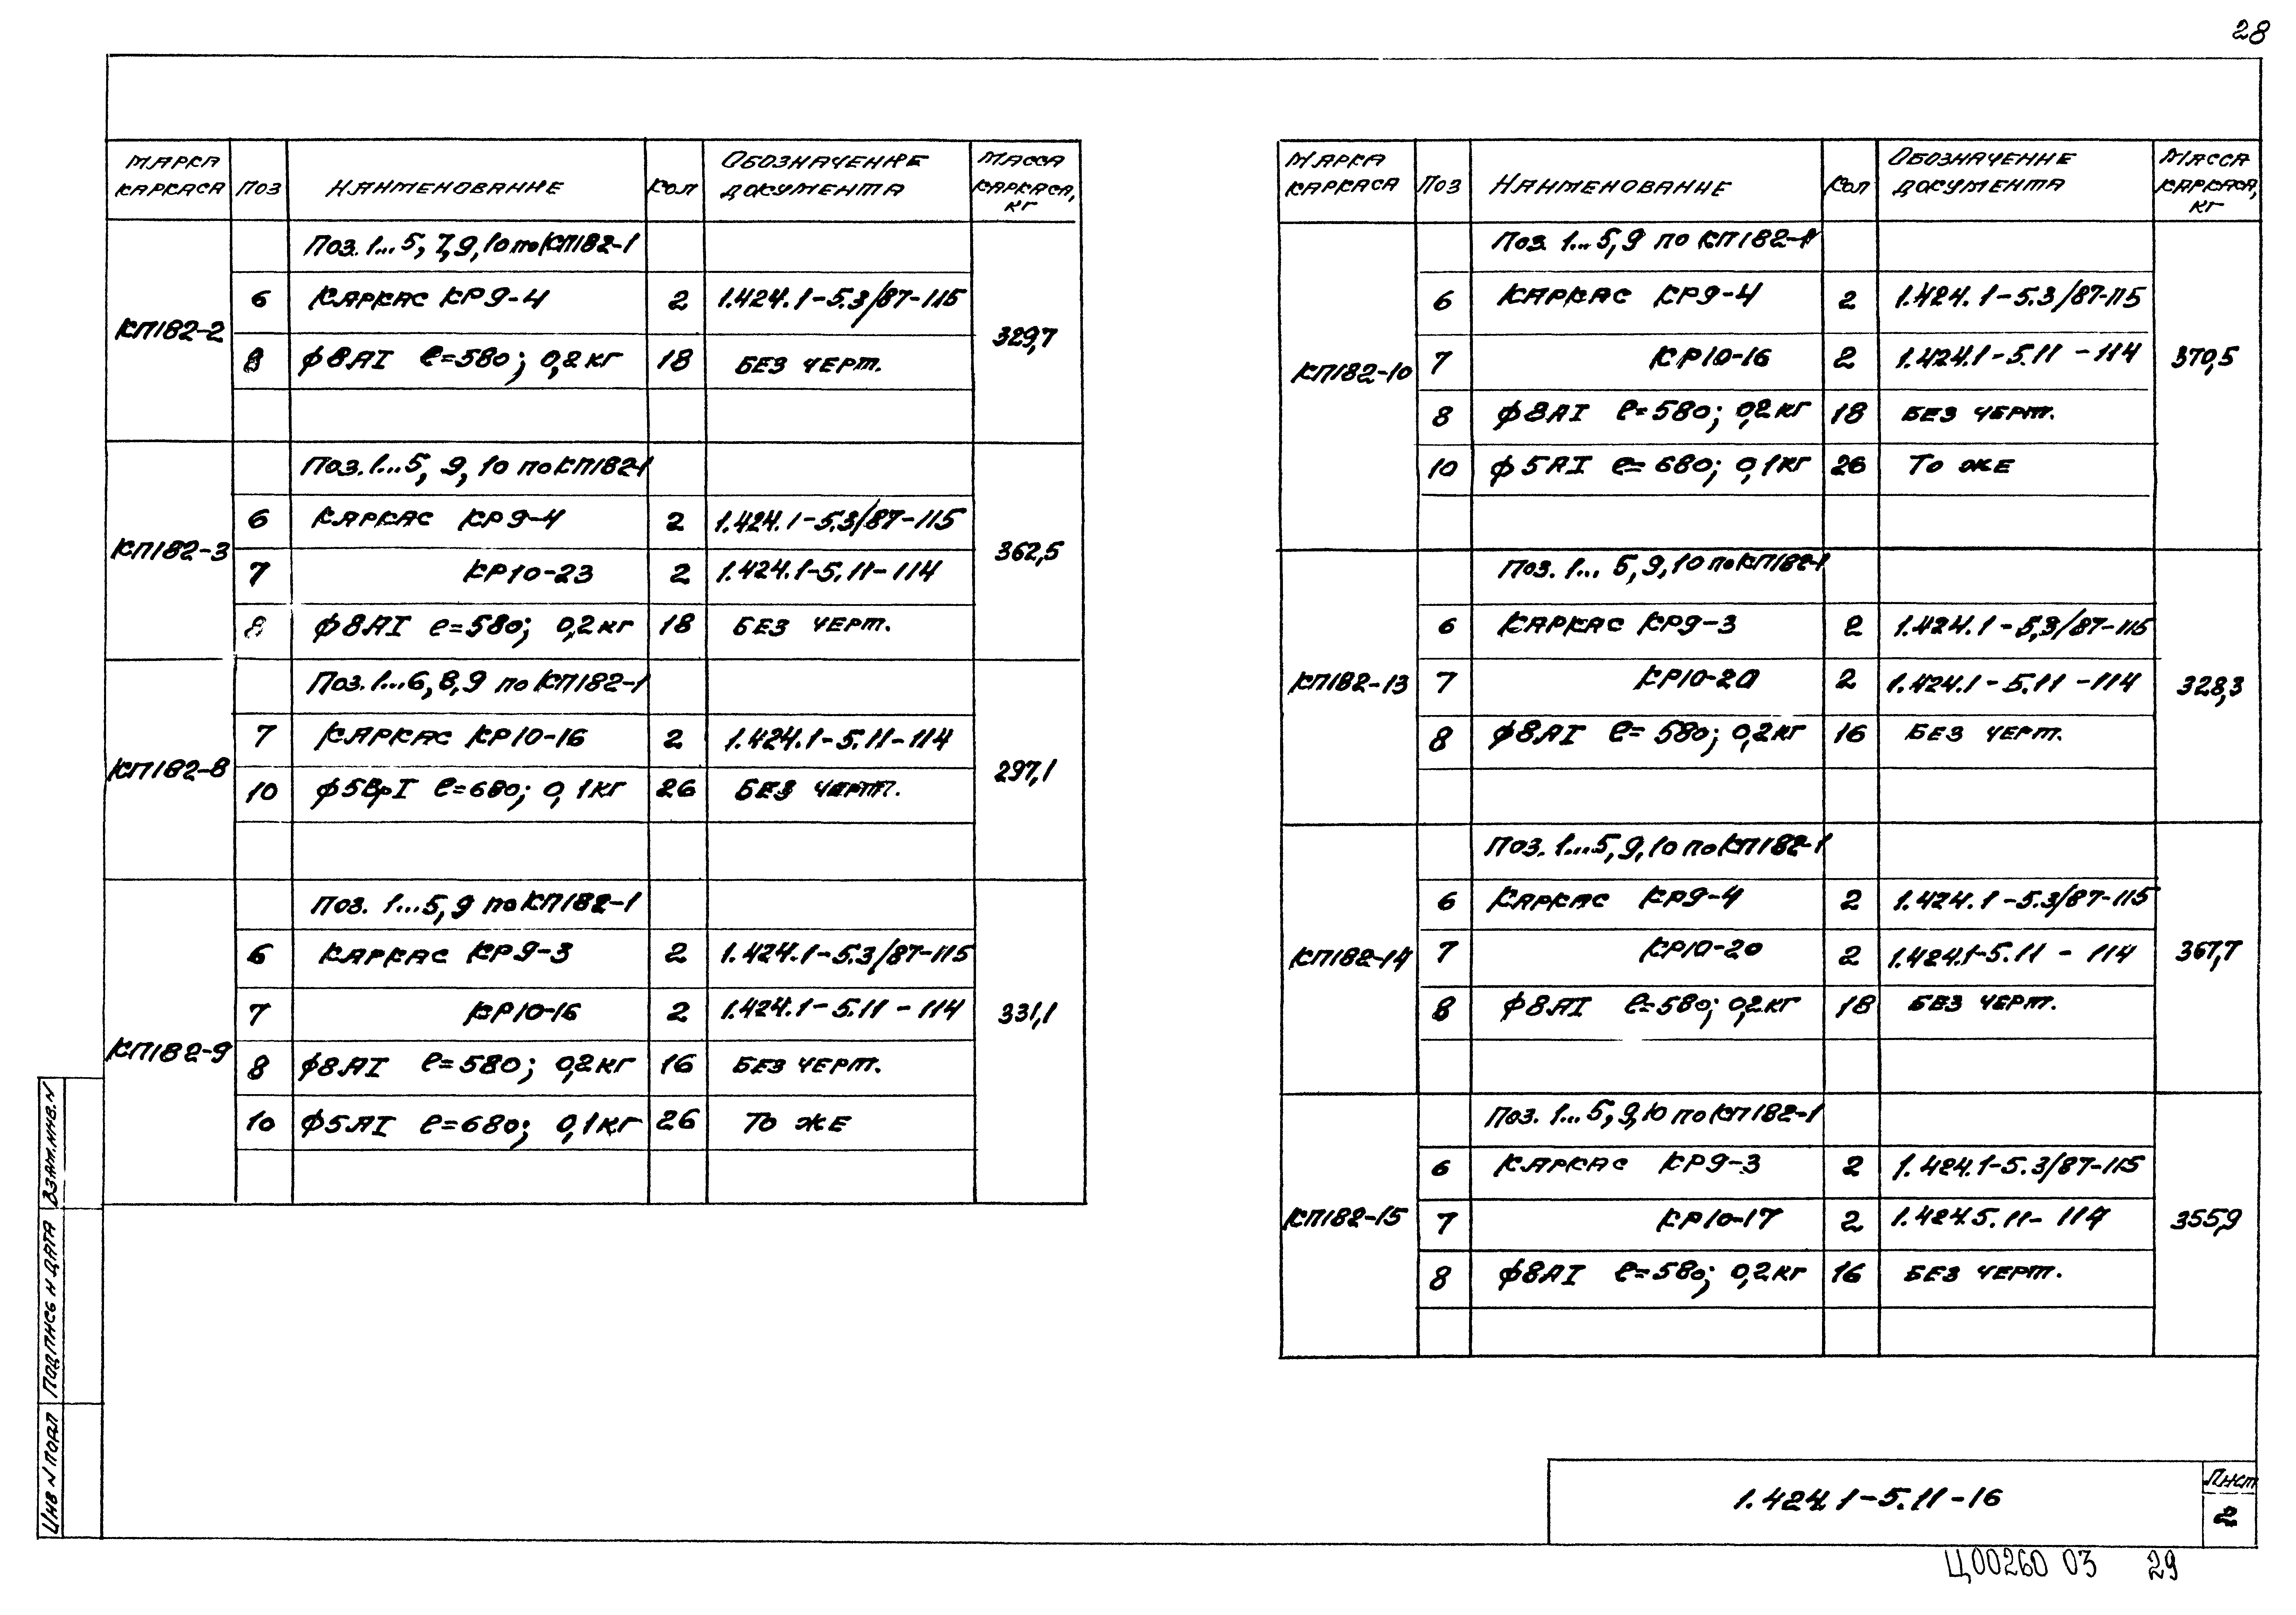 28
Марка каркаса Поз Наименование Кол Обозначение документа Масса каркаса, кг
Поз. 1...5, 7, 9, 10 по КП182-1
КП182-2 329,7
6 Каркас КР9-4 2 1.424.1-5.3/87-115
8 ф8АI ℓ=580; 0,2 кг 18 без черт.
Поз. 1...5, 9, 10 по КП182-1
КП182-3 362,5
6 Каркас КР9-4 2 1.424.1-5.3/87-115
7 КР10-23 2 1.424.1-5.11-114
8 ф8АI ℓ=580; 0,2 кг 18 без черт.
Поз. 1...6, 8, 9 по КП182-1
КП182-8 297,1
7 Каркас КР10-16 2 1.424.1-5.11-114
10 ф5ВрI ℓ=680; 0,1 кг 26 без черт.
Поз. 1...5, 9 по КП182-1
КП182-9 331,1
6 Каркас КР9-3 2 1.424.1-5.3/87-115
7 КР10-16 2 1.424.1-5.11-114
8 ф8АI ℓ=580; 0,2 кг 16 без черт.
10 ф5АI ℓ=680; 0,1 кг 26 То же
Марка каркаса Поз Наименование Кол Обозначение документа Масса каркаса, кг
Поз. 1...5, 9 по КП182-1
КП182-10 370,5
6 Каркас КР9-4 2 1.424.1-5.3/87-115
7 КР10-16 2 1.424.1-5.11-114
8 ф8АI ℓ=580; 0,2 кг 18 без черт.
10 ф5АI ℓ=680; 0,1 кг 26 То же
Поз. 1...5, 9, 10 по КП182-1
КП182-13 328,3
6 Каркас КР9-3 2 1.424.1-5,3/87-115
7 КР10-20 2 1.424.1-5.11-114
8 ф8АI ℓ=580; 0,2 кг 16 без черт.
Поз. 1...5, 9, 10 по КП182-1
КП182-14 367,7
6 Каркас КР9-4 2 1.424.1-5.3/87-115
7 КР10-20 2 1.424.1-5.11-114
8 ф8АI ℓ=580; 0,2 кг 18 без черт.
Поз. 1...5, 9, 10 по КП182-1
КП182-15 355,9
6 Каркас КР9-3 2 1.424.1-5.3/87-115
7 КР10-17 2 1.424.5.11-114
8 ф8АI ℓ=580; 0,2 кг 16 без черт.
Инв N подл Подпись и дата Взам.инв.N
1.424.1-5.11-16
Лист
2
Ц00260 03 29